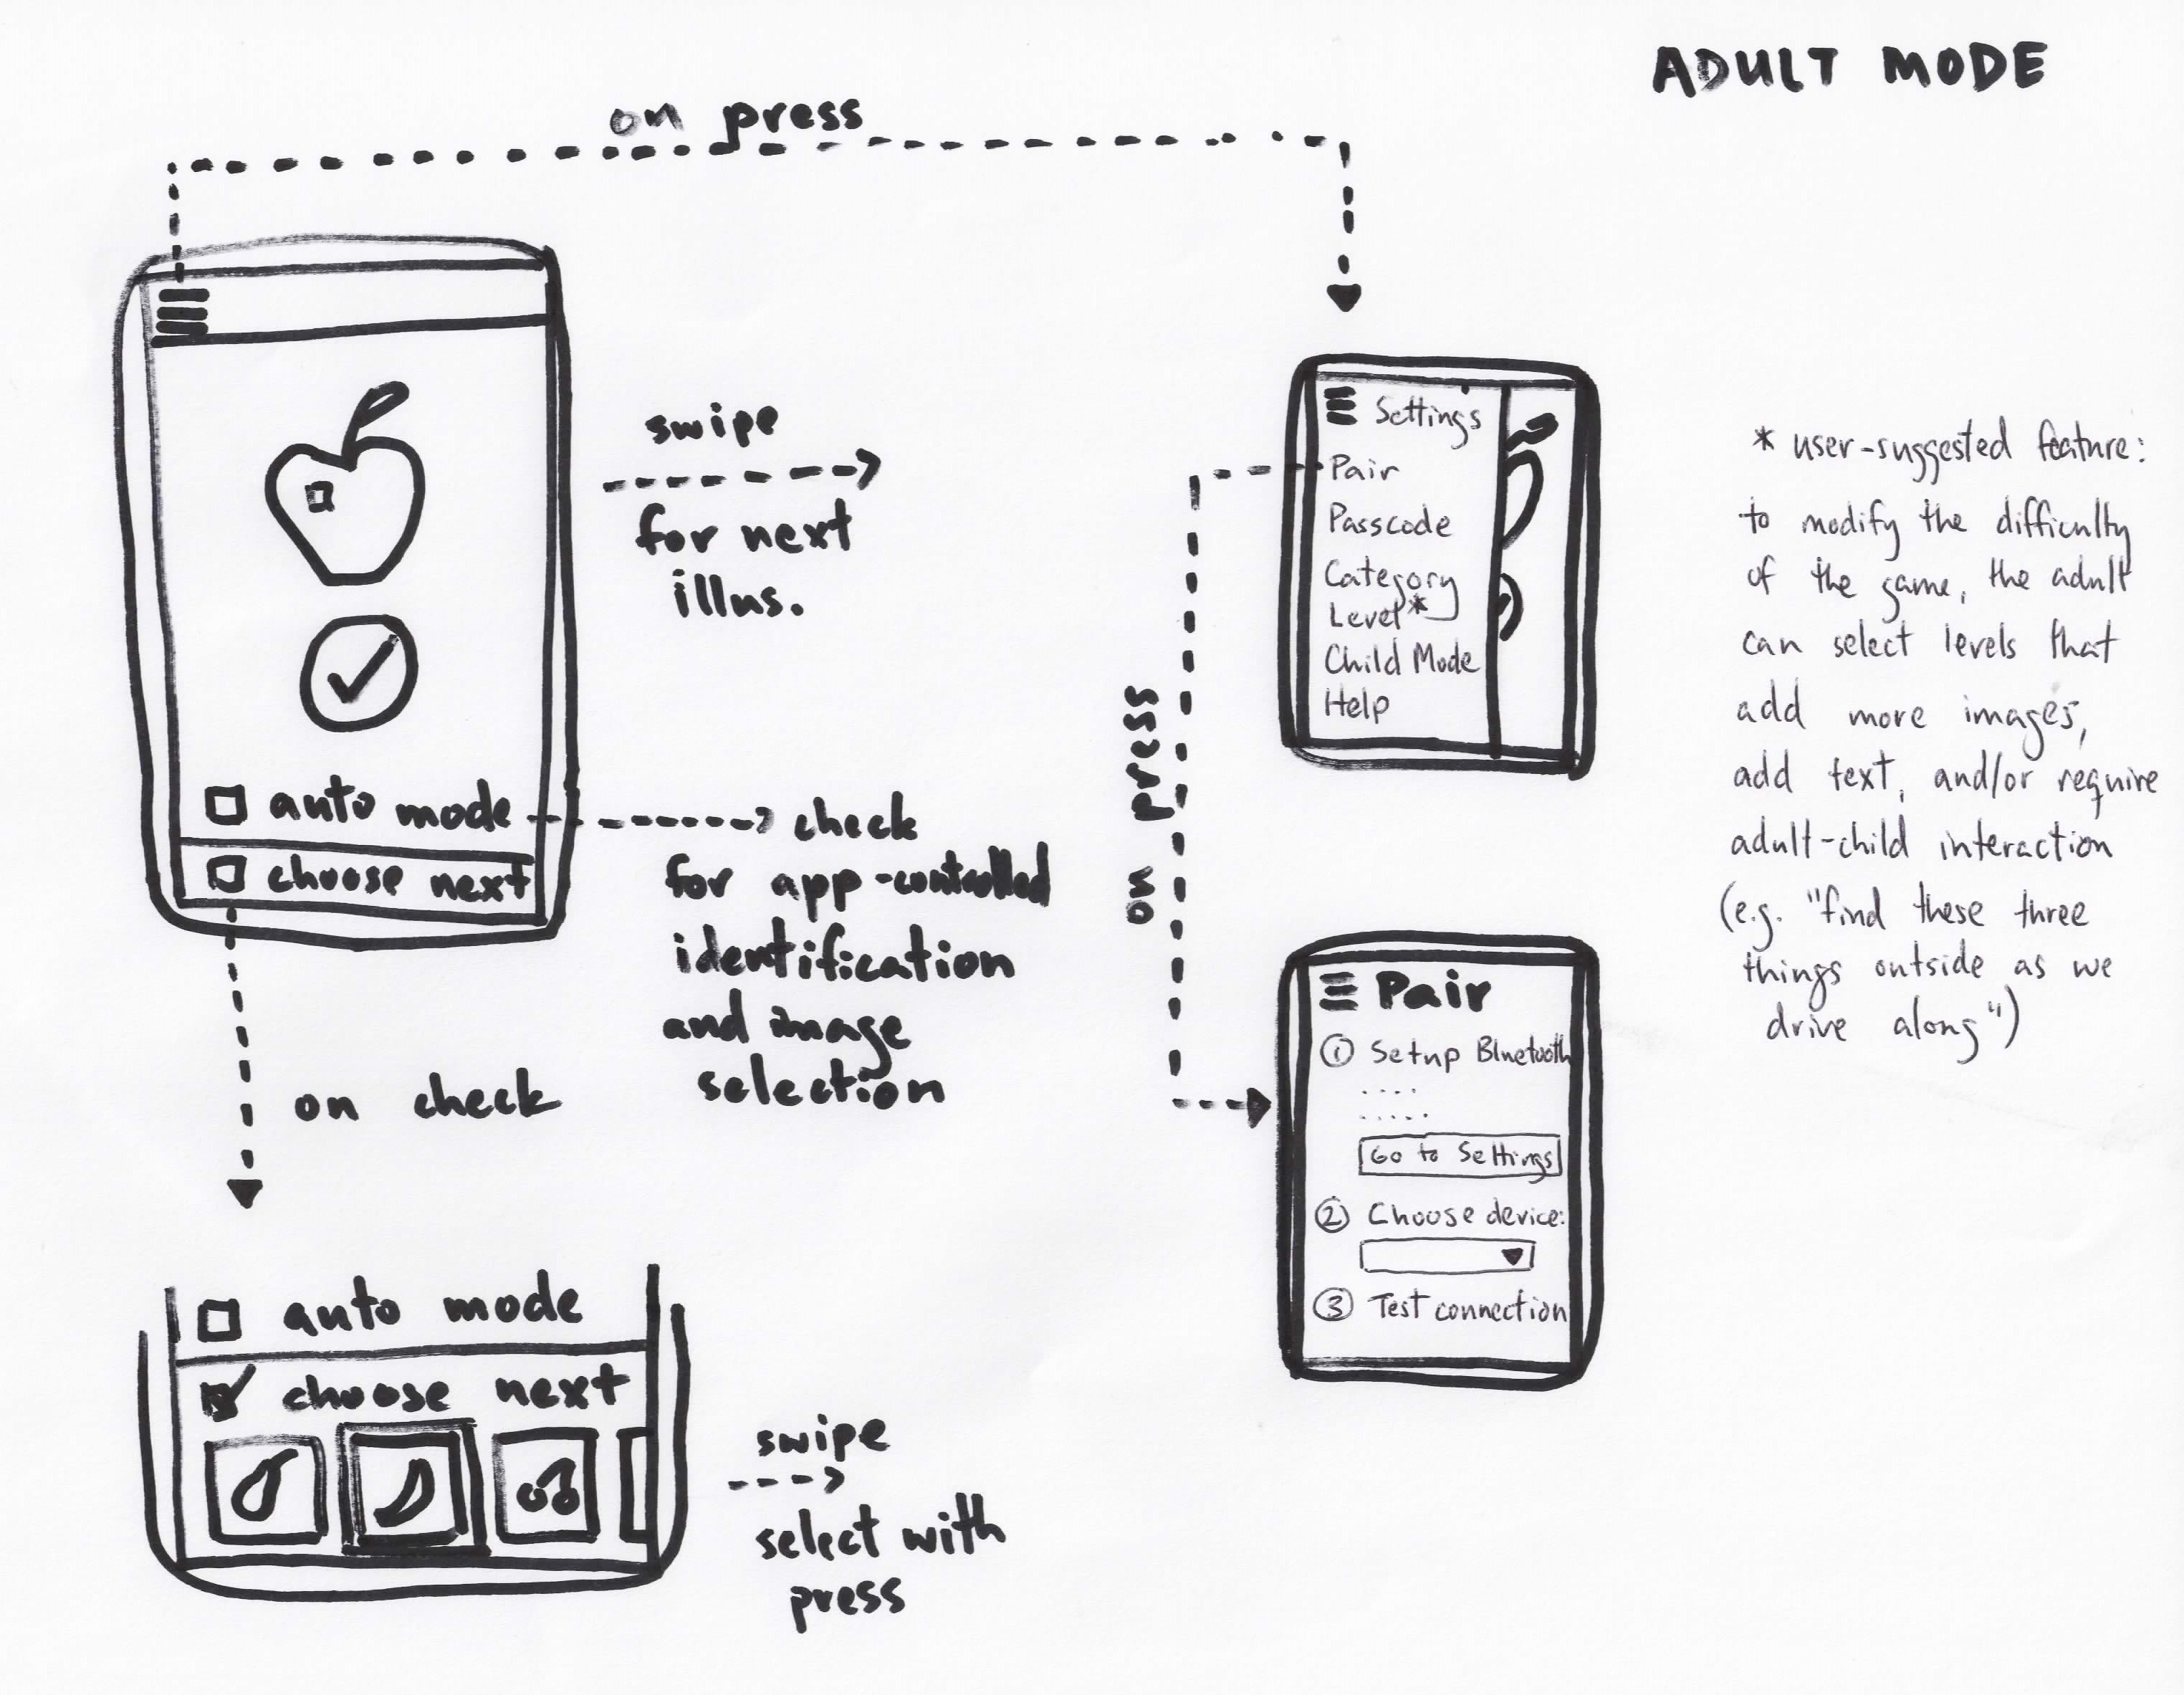 ADULT MODE
on press
swipe
for next
illus.
auto mode
choose next
check
for app-controlled
identification
and image
selection
on check
auto mode
choose next
swipe
select with
press
Settings
Pair
Passcode
Category
Level*
Child Mode
Help
on press
Pair
① Setup Bluetooth
.....
.....
Go to Settings
② Choose device:
③ Test connection
* user-suggested feature:
to modify the difficulty
of the game, the adult
can select levels that
add more images,
add text, and/or require
adult-child interaction
(e.g. "find these three
things outside as we
drive along")